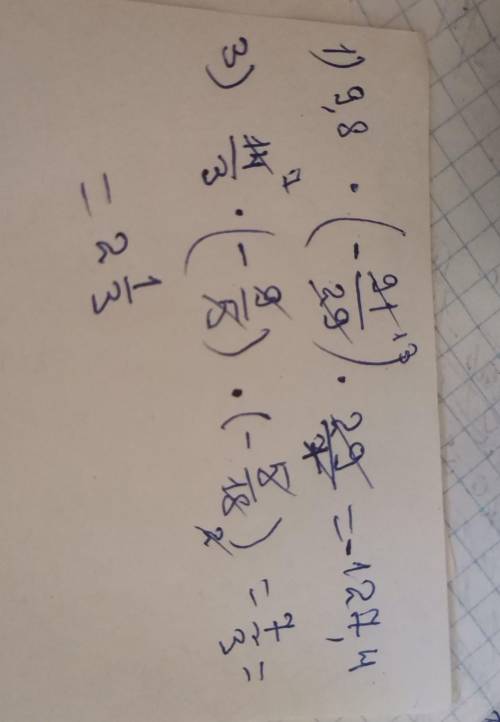 1) 9,8 · (- 91/29) 13 · 29/7 = -127,4
3) 14/3 7 · (- 9/5) · (- 5/18 2) = 7/3 =
= 2 1/3